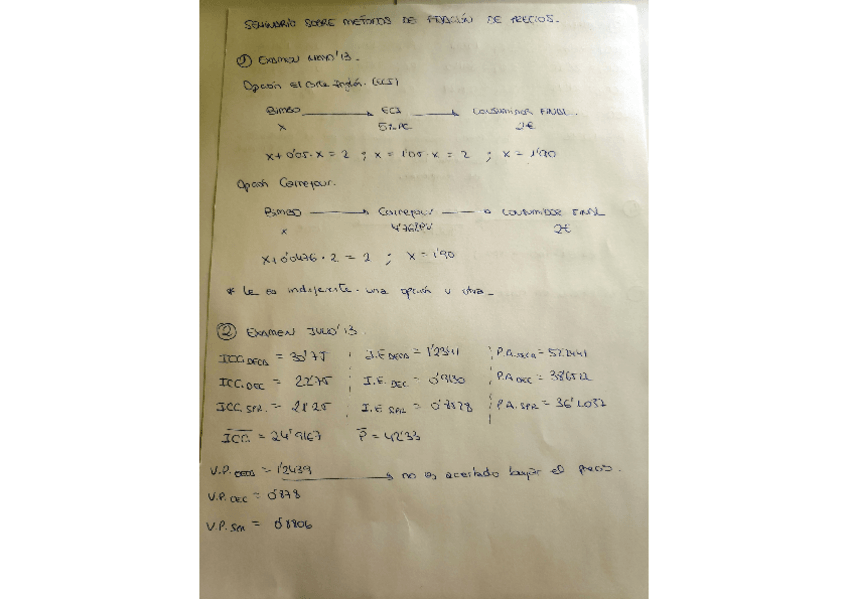 SEMINARIO SOBRE MÉTODOS DE FIJACIÓN DE PRECIOS.
① EXAMEN MAYO'13.
Opción el Corte Inglés. (ECI)
BIMBO → ECI → CONSUMIDOR FINAL.
x 5% PC 2€
x + 0'05·x = 2 ; x = 1'05·x = 2 ; x = 1'90
Opción Carrefour.
BIMBO → Carrefour → CONSUMIDOR FINAL
x 4'76% PV 2€
x + 0'0476 · 2 = 2 ; x = 1'90
* Le es indiferente una opción u otra.
② EXAMEN JULIO'13.
ICC. DECA = 30'75 I.E DECA = 1'2341 P.A. DECA = 52'2441
ICC. DEC = 22'75 I.E. DEC = 0'9130 P.A. DEC =
ICC. SPR. = I.E SPR. = P.A. SPR =
ICC = 24'9167 P = 42'33
V.P. DECA = 1'2439 → no es acertado bajar el precio.
V.P. DEC = 0'878
V.P. SPR = 0'8806